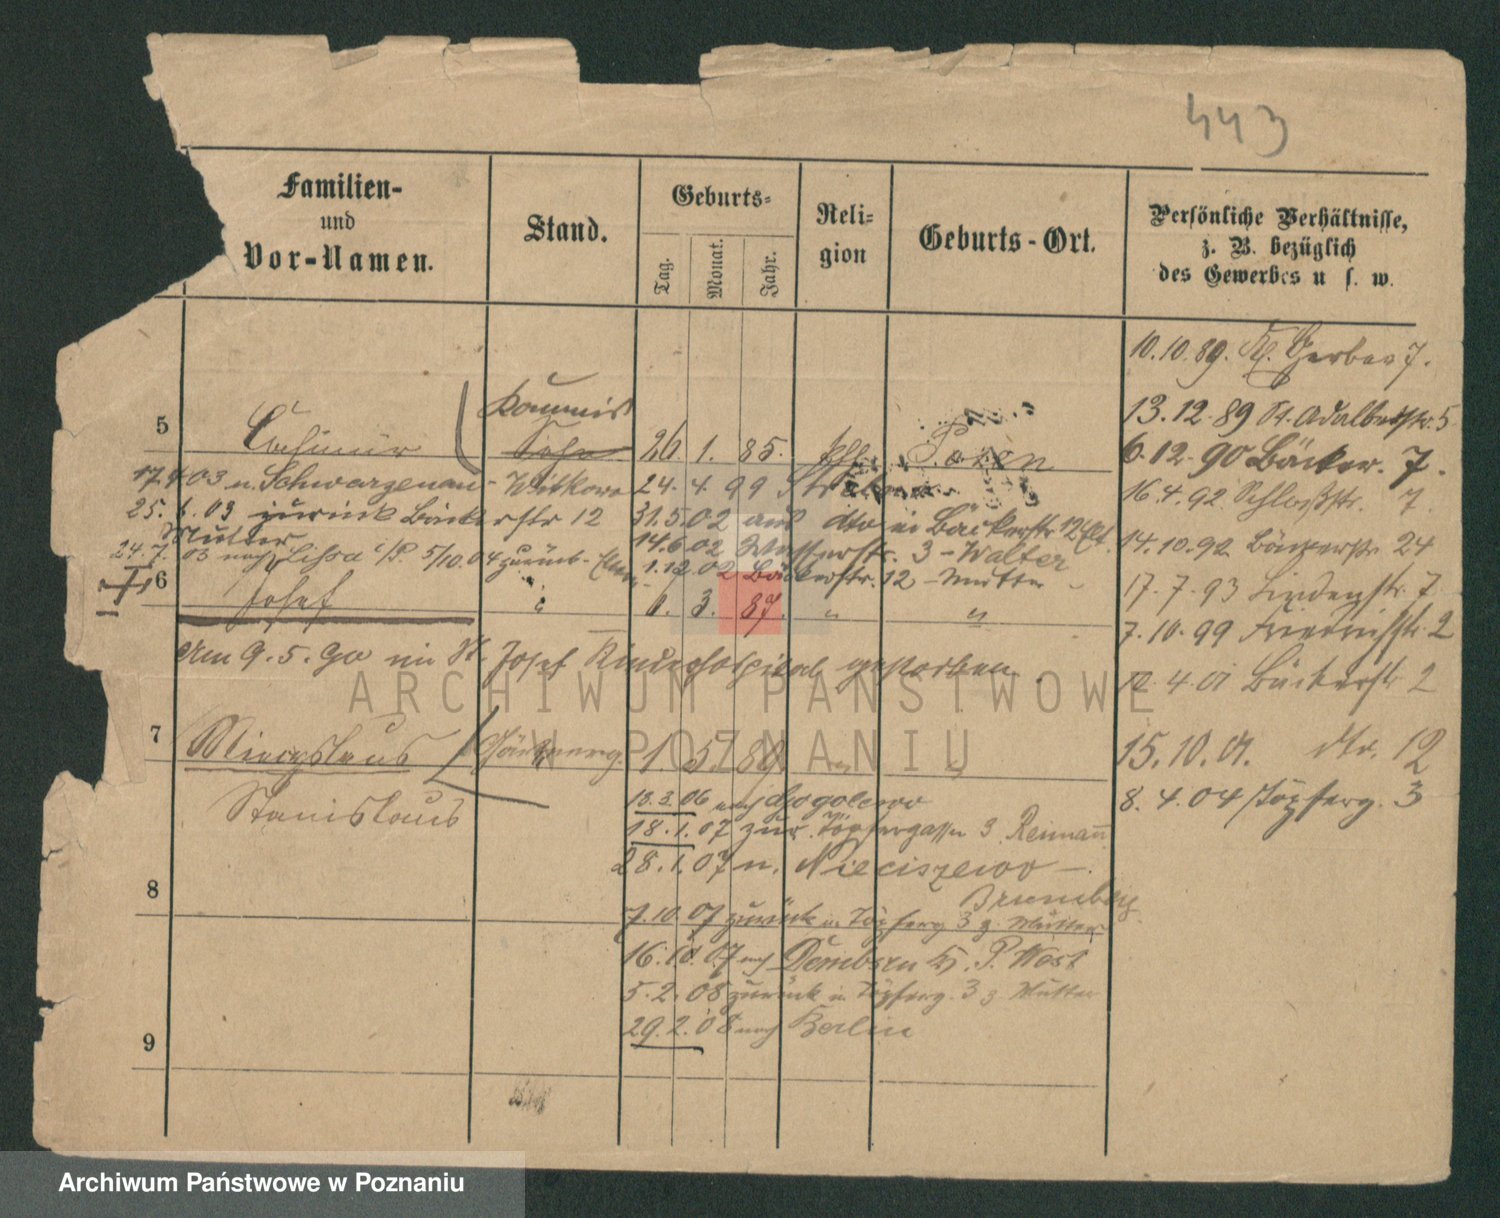 443
Familien-
und
Vor-Namen.
Stand.
Geburts-
Tag.
Monat.
Jahr.
Reli-
gion
Geburts-Ort.
Persönliche Verhältnisse,
z. B. bezüglich
des Gewerbes u s. w.
10.10.89. Kl. Gerber 7.
13.12.89 St. Adalbertstr. 5
6.12.90 Bäcker. 7.
16.4.92 Schloßstr. 7.
14.10.92 Bäckerstr. 24
17.7.93 Lindenstr. 7
7.10.99 Friedrichstr. 2
4.01 Bäckerstr. 2
15.10.01. dto. 12
8.4.04 Töpferg. 3
5
Casimir
Kommis
Sohn
26. 1. 85.
Posen
17.4.03 n. Schwarzenau - Witkowo
24.4.99
25.6.03 zurück Bäckerstr 12
31.5.02 aus dto in Bäckerstr 12
Mutter
14.6.02 3 - Walter
24.7.03 nach Lissa i/P. 5/10.04 zurück
1.12.02 Bäckerstr. 12 - Mutter
6
Josef
"
6. 3. 87.
"
"
Am 9.5.90 im St. Josef Kinderhospital gestorben.
7
Miecyslaus
Stanislaus
1. 5. 89.
"
"
13.3.06 nach
18.1.07 zur. Töpfergasse 3. Reimann
28.1.07 n. Nieciszewo -
Bromberg
8
7.10.07 zurück in Töpferg 3 z. Mutter
16.10.07 nach Dembsen Kr. P. West
5.2.08 zurück in Töpferg. 3 z Mutter
29.2.08 nach Berlin
9
ARCHIWUM PAŃSTWOWE
W POZNANIU
Archiwum Państwowe w Poznaniu